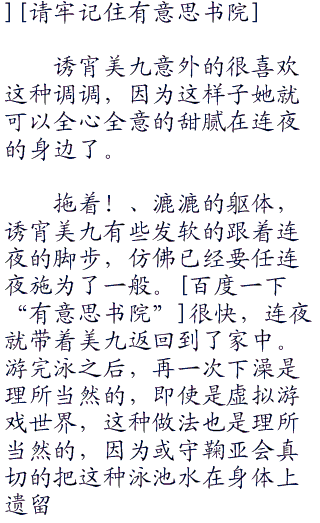 ][请牢记住有意思书院]
诱宵美九意外的很喜欢
这种调调，因为这样子她就
可以全心全意的甜腻在连夜
的身边了。
拖着！、漉漉的躯体，
诱宵美九有些发软的跟着连
夜的脚步，仿佛已经要任连
夜施为了一般。[百度一下
“有意思书院”]很快，连夜
就带着美九返回到了家中。
游完泳之后，再一次下澡是
理所当然的，即使是虚拟游
戏世界，这种做法也是理所
当然的，因为或守鞠亚会真
切的把这种泳池水在身体上
遗留